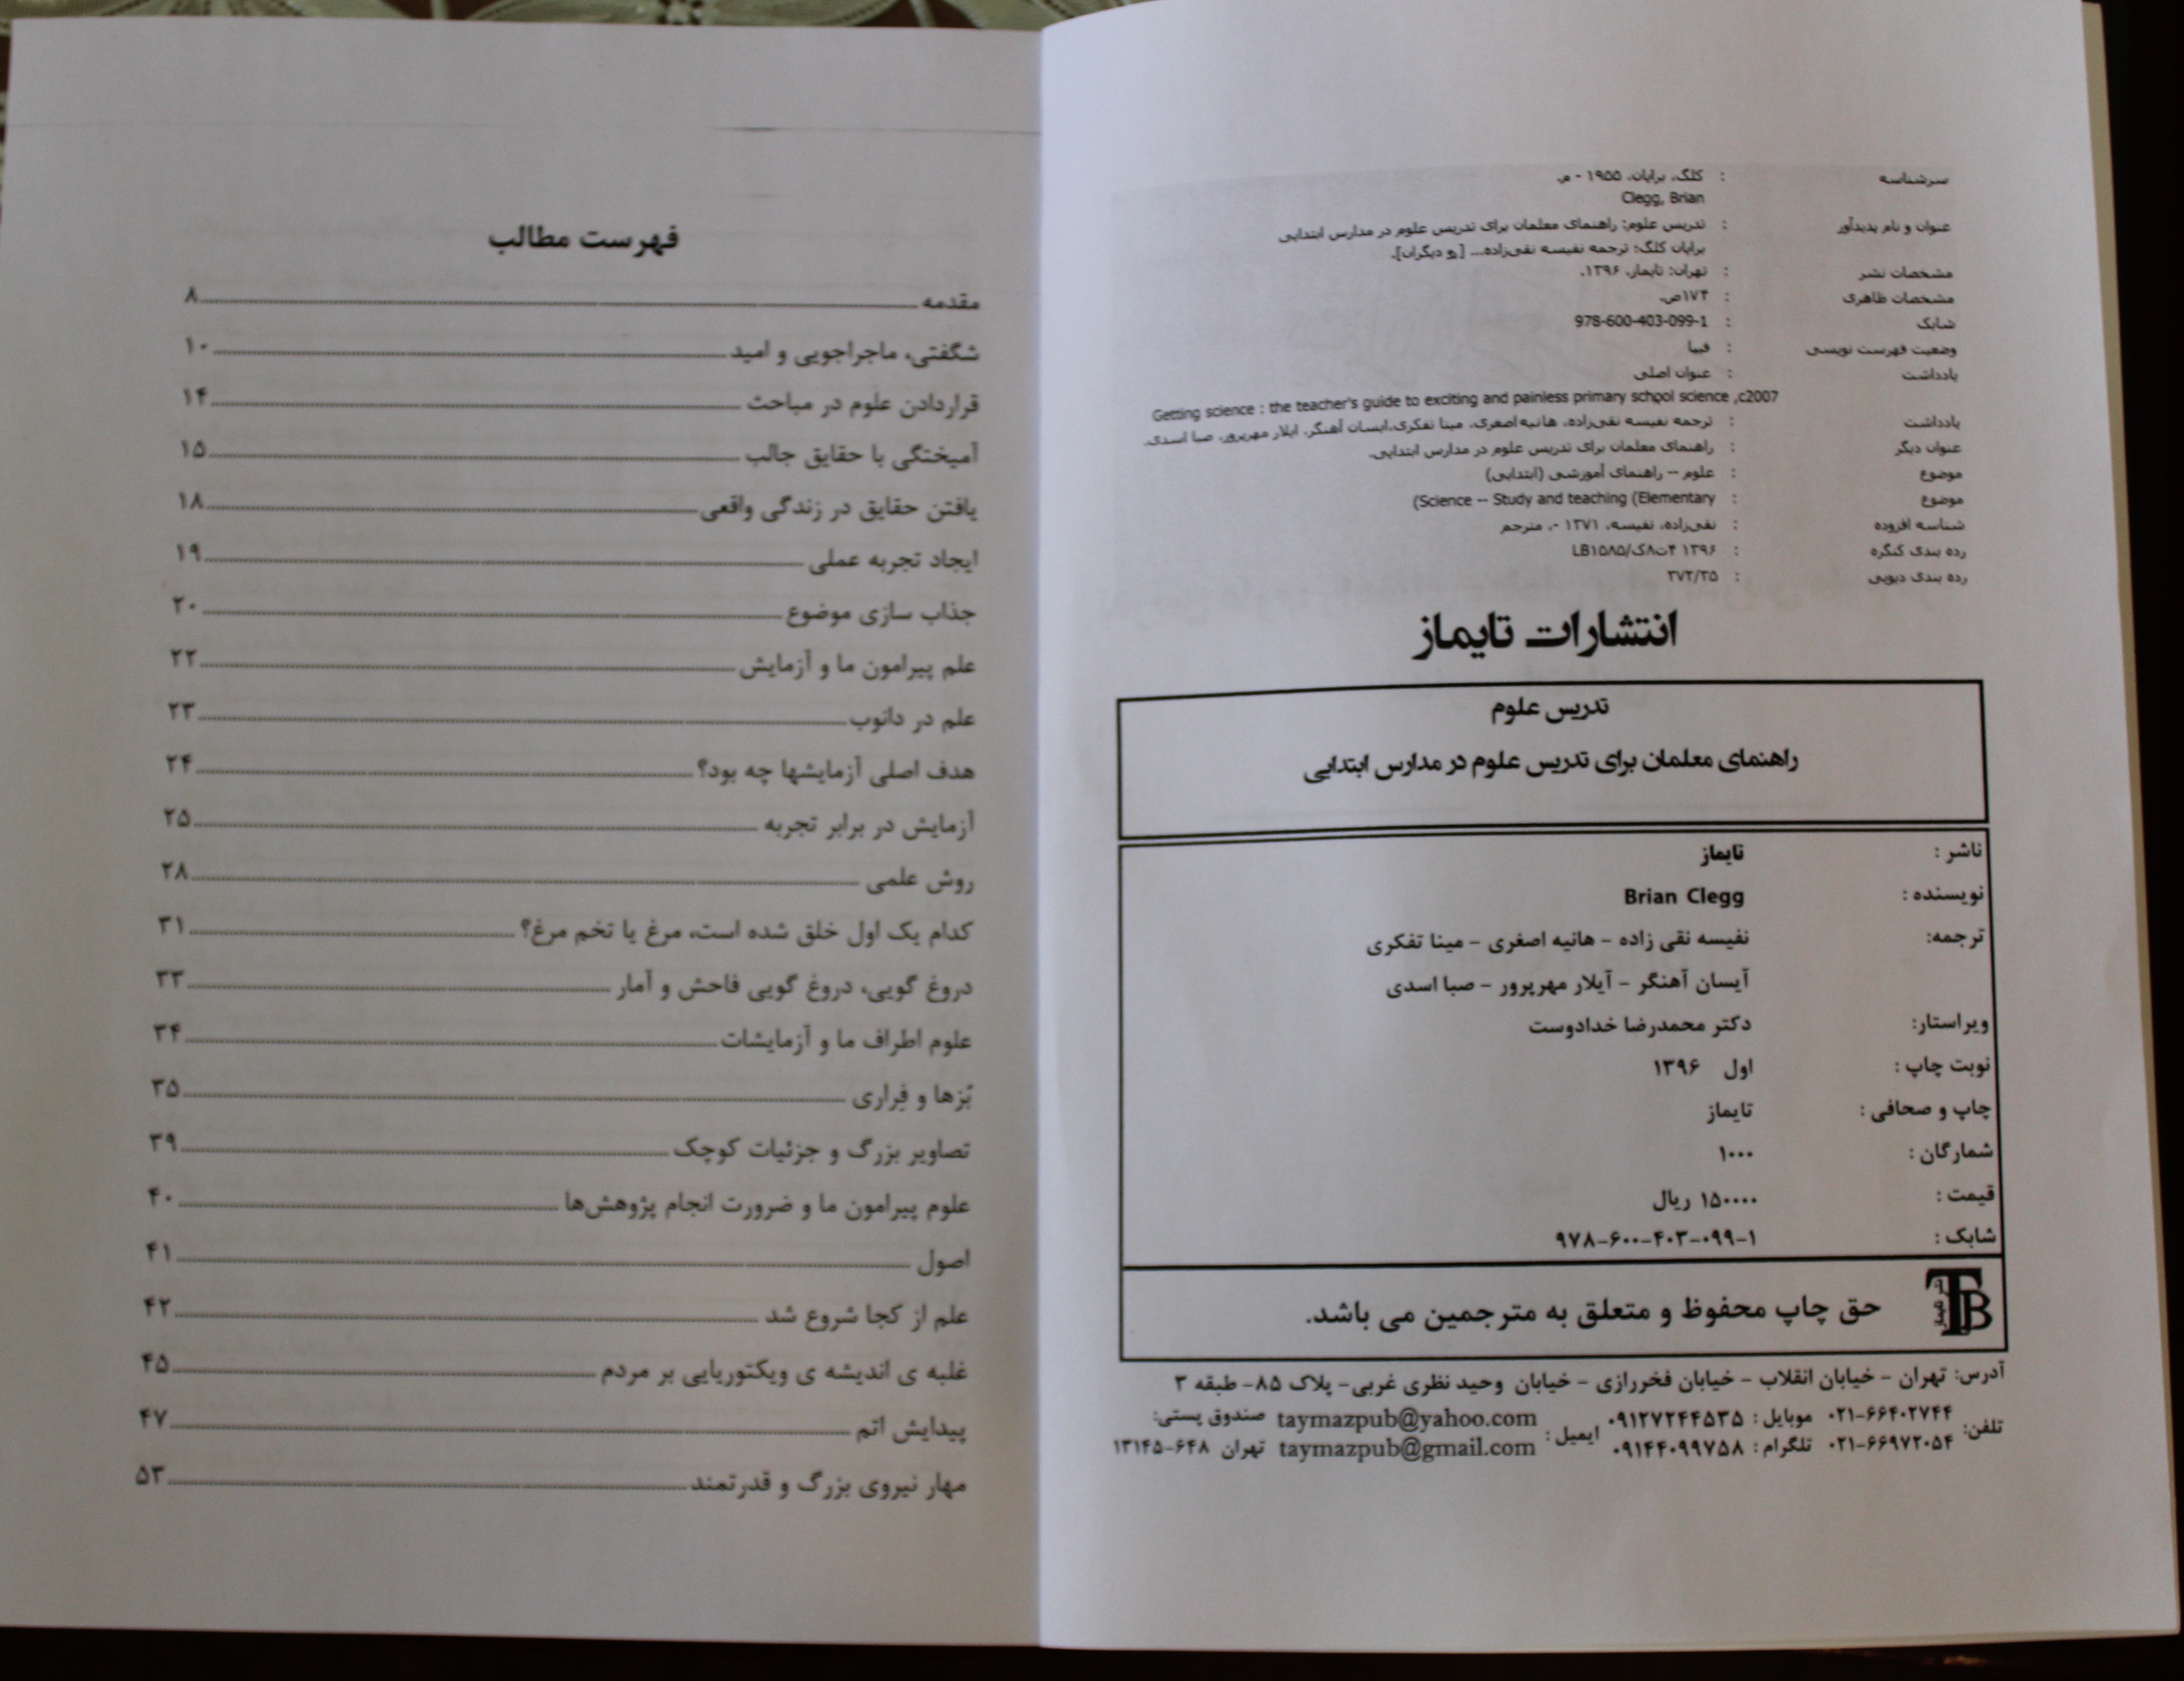 سرشناسه : کلگ، برایان، ۱۹۵۵ - م.
Clegg, Brian
عنوان و نام پدیدآور : تدریس علوم: راهنمای معلمان برای تدریس علوم در مدارس ابتدایی
برایان کلگ؛ ترجمه نفیسه نقی‌زاده... [و دیگران].
مشخصات نشر : تهران: تایماز، ۱۳۹۶.
مشخصات ظاهری : ۱۷۴ص.
شابک : 978-600-403-099-1
وضعیت فهرست نویسی : فیپا
یادداشت : عنوان اصلی
Getting science : the teacher's guide to exciting and painless primary school science ,c2007
یادداشت : ترجمه نفیسه نقی‌زاده، هانیه اصغری، مینا تفکری،ایسان آهنگر، ایلار مهرپرور، صبا اسدی.
عنوان دیگر : راهنمای معلمان برای تدریس علوم در مدارس ابتدایی.
موضوع : علوم -- راهنمای آموزشی (ابتدایی)
موضوع : (Science -- Study and teaching (Elementary
شناسه افزوده : نقی‌زاده، نفیسه، ۱۳۷۱ -، مترجم
رده بندی کنگره : ۱۳۹۶ ۴ت۸ک/LB۱۵۸۵
رده بندی دیویی : ۳۷۲/۳۵
انتشارات تایماز
تدریس علوم
راهنمای معلمان برای تدریس علوم در مدارس ابتدایی
ناشر : تایماز
نویسنده : Brian Clegg
ترجمه: نفیسه نقی زاده - هانیه اصغری - مینا تفکری
آیسان آهنگر - آیلار مهرپرور - صبا اسدی
ویراستار: دکتر محمدرضا خدادوست
نوبت چاپ : اول ۱۳۹۶
چاپ و صحافی : تایماز
شمارگان : ۱۰۰۰
قیمت : ۱۵۰۰۰۰ ریال
شابک : ۹۷۸-۶۰۰-۴۰۳-۰۹۹-۱
حق چاپ محفوظ و متعلق به مترجمین می باشد.
TB نشر تایماز
آدرس: تهران - خیابان انقلاب - خیابان فخررازی - خیابان وحید نظری غربی- پلاک ۸۵- طبقه ۳
تلفن: ۰۲۱-۶۶۴۰۲۷۴۴ موبایل : ۰۹۱۲۷۲۴۴۵۳۵ ایمیل : taymazpub@yahoo.com صندوق پستی:
۰۲۱-۶۶۹۷۲۰۵۴ تلگرام : ۰۹۱۴۴۰۹۹۷۵۸ taymazpub@gmail.com تهران ۶۴۸-۱۳۱۴۵
فهرست مطالب
مقدمه ۸
شگفتی، ماجراجویی و امید ۱۰
قراردادن علوم در مباحث ۱۴
آمیختگی با حقایق جالب ۱۵
یافتن حقایق در زندگی واقعی ۱۸
ایجاد تجربه عملی ۱۹
جذاب سازی موضوع ۲۰
علم پیرامون ما و آزمایش ۲۲
علم در دانوب ۲۳
هدف اصلی آزمایشها چه بود؟ ۲۴
آزمایش در برابر تجربه ۲۵
روش علمی ۲۸
کدام یک اول خلق شده است، مرغ یا تخم مرغ؟ ۳۱
دروغ گویی، دروغ گویی فاحش و آمار ۳۳
علوم اطراف ما و آزمایشات ۳۴
بُزها و فِراری ۳۵
تصاویر بزرگ و جزئیات کوچک ۳۹
علوم پیرامون ما و ضرورت انجام پژوهش‌ها ۴۰
اصول ۴۱
علم از کجا شروع شد ۴۲
غلبه ی اندیشه ی ویکتوریایی بر مردم ۴۵
پیدایش اتم ۴۷
مهار نیروی بزرگ و قدرتمند ۵۳